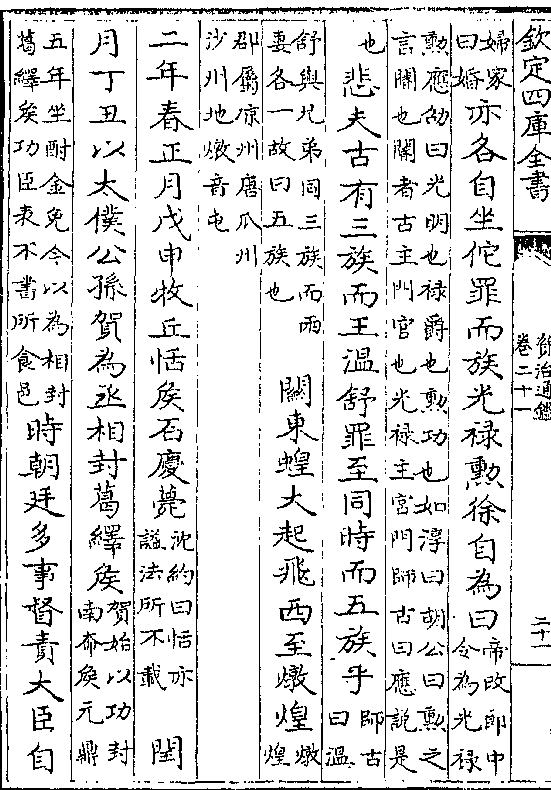 欽定四庫全書
資治通鑑
卷二十一
二十一
婦家
曰婚
亦各自坐佗罪而族光禄勲徐自為曰
帝改郎中
令為光禄
勲應劭曰光明也禄爵也勲功也如淳曰胡公曰勲之
言閽也閽者古主門官也光禄主宮門師古曰應說是
也
悲夫古有三族而王溫舒罪至同時而五族乎
師古
曰溫
舒與兄弟同三族而兩
妻各一故曰五族也
關東蝗大起飛西至燉煌
燉
煌
郡屬凉州唐瓜州
沙州地燉音屯
二年春正月戊申牧丘恬侯石慶薨
沈約曰恬亦
諡法所不載
閏
月丁丑以太僕公孫賀為丞相封葛繹侯
賀始以功封
南奅侯元鼎
五年坐酎金免今以為相封
葛繹侯功臣表不書所食邑
時朝廷多事督責大臣自